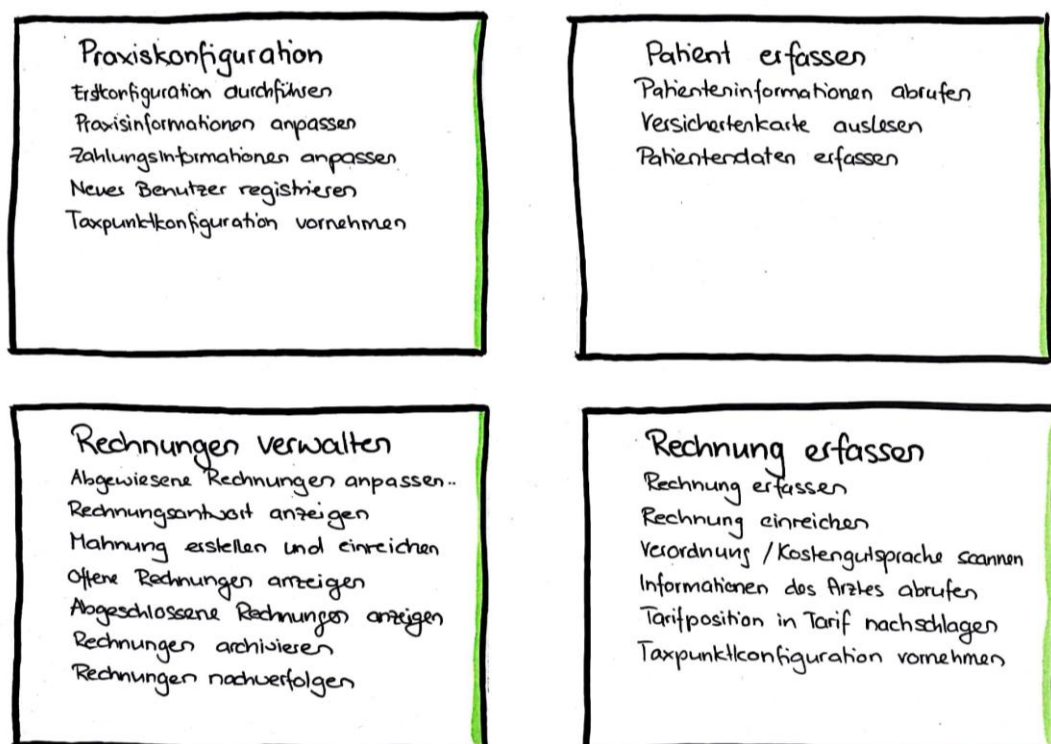 Praxiskonfiguration
Erstkonfiguration durchführen
Praxisinformationen anpassen
Zahlungsinformationen anpassen
Neues Benutzer registrieren
Taxpunktkonfiguration vornehmen
Patient erfassen
Patienteninformationen abrufen
Versichertenkarte auslesen
Patientendaten erfassen
Rechnungen verwalten
Abgewiesene Rechnungen anpassen..
Rechnungsantwort anzeigen
Mahnung erstellen und einreichen
Offene Rechnungen anzeigen
Abgeschlossene Rechnungen anzeigen
Rechnungen archivieren
Rechnungen nachverfolgen
Rechnung erfassen
Rechnung erfassen
Rechnung einreichen
Verordnung / Kostengutsprache scannen
Informationen des Arztes abrufen
Tarifposition in Tarif nachschlagen
Taxpunktkonfiguration vornehmen